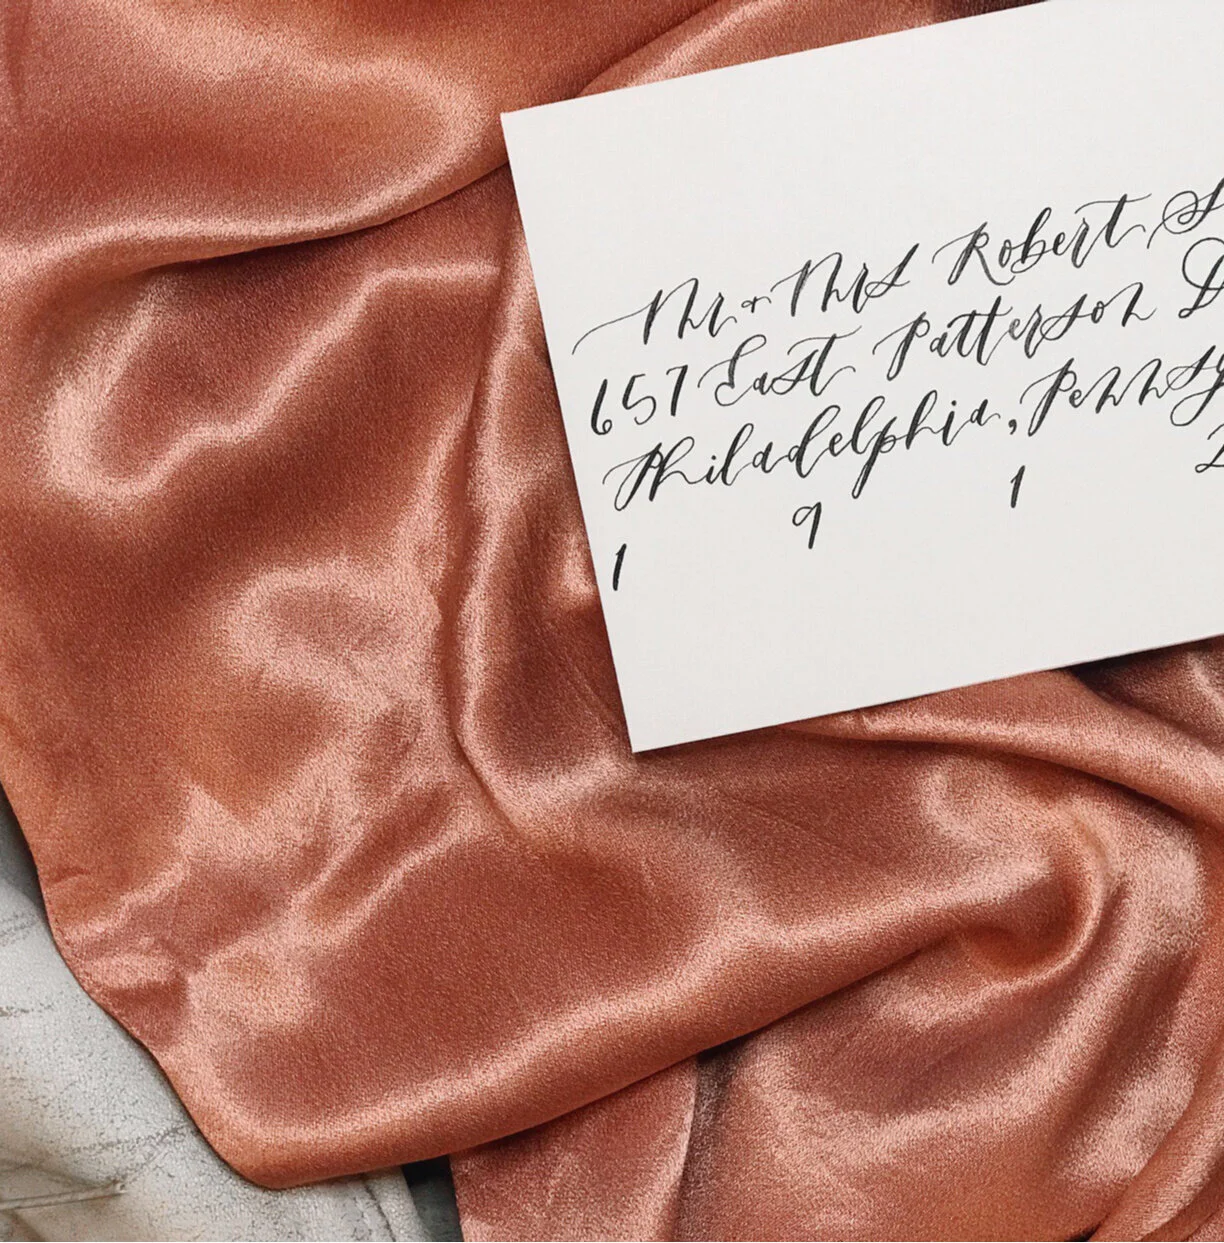 Mr + Mrs Robert S
657 East Patterson D
Philadelphia, Pennsy
1 9 1 2